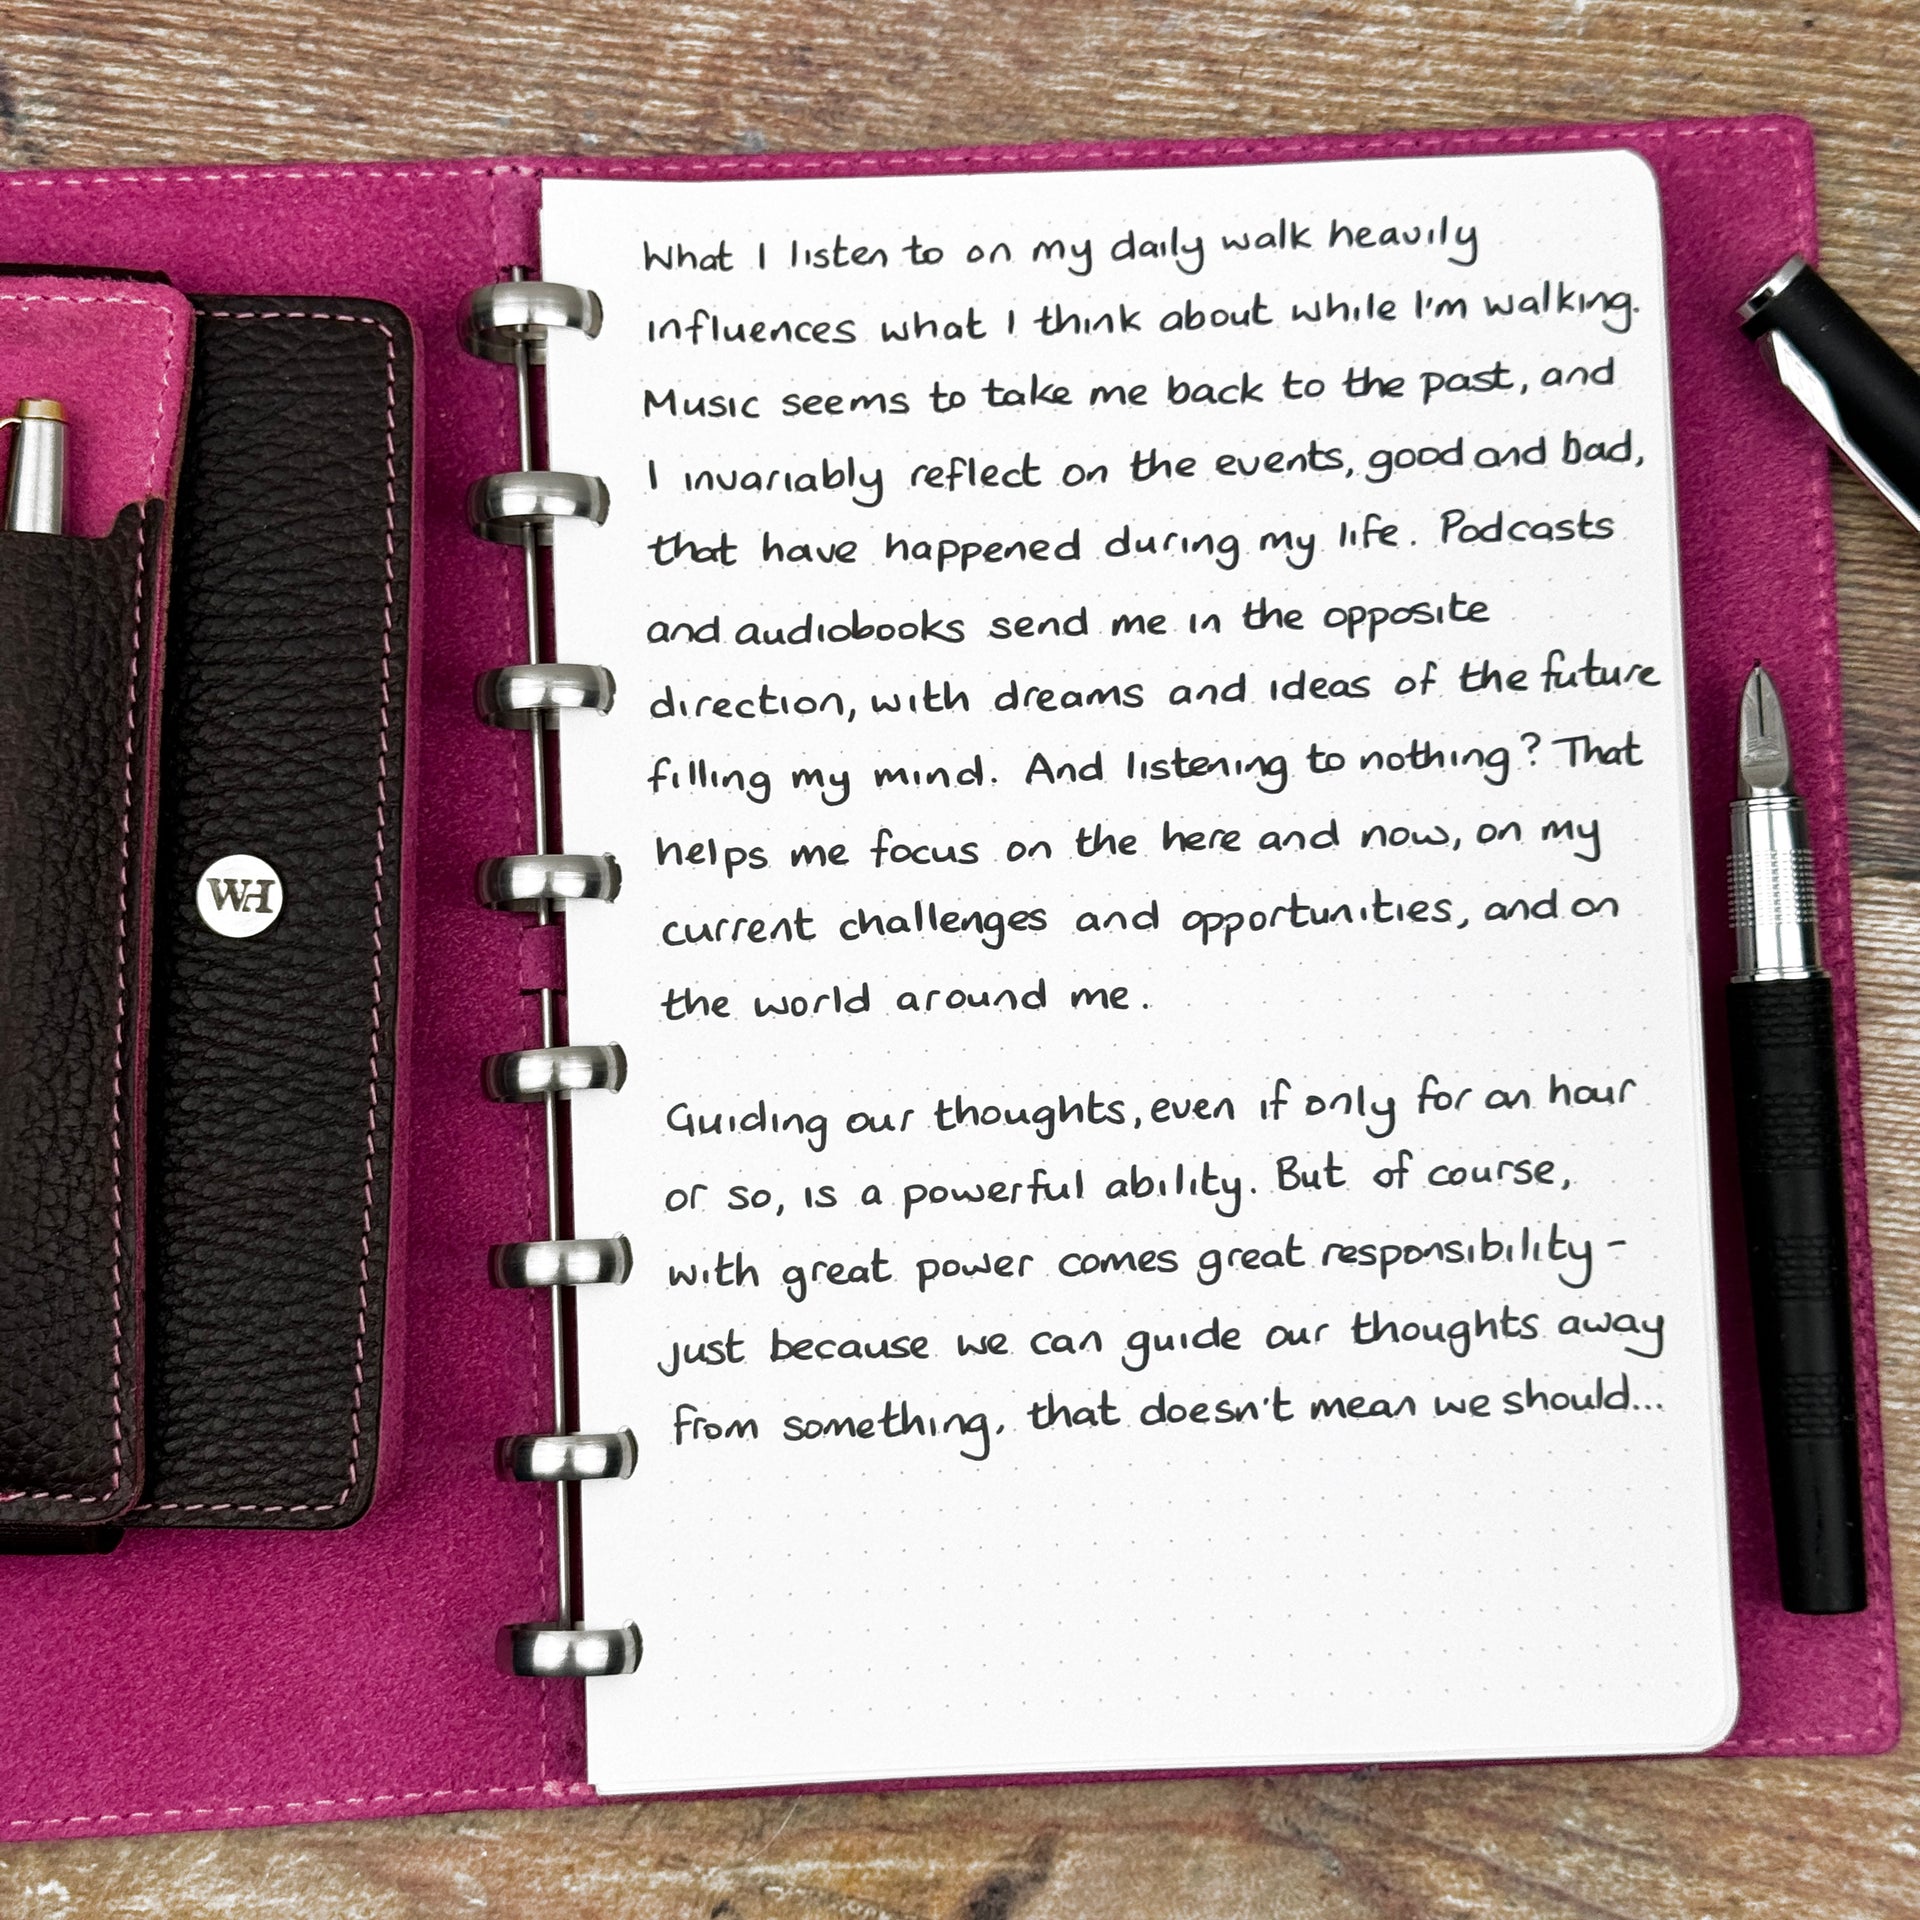 What I listen to on my daily walk heavily
influences what I think about while I'm walking.
Music seems to take me back to the past, and
I invariably reflect on the events, good and bad,
that have happened during my life. Podcasts
and audiobooks send me in the opposite
direction, with dreams and ideas of the future
filling my mind. And listening to nothing? That
helps me focus on the here and now, on my
current challenges and opportunities, and on
the world around me.
Guiding our thoughts, even if only for an hour
or so, is a powerful ability. But of course,
with great power comes great responsibility -
just because we can guide our thoughts away
from something, that doesn't mean we should...
WH